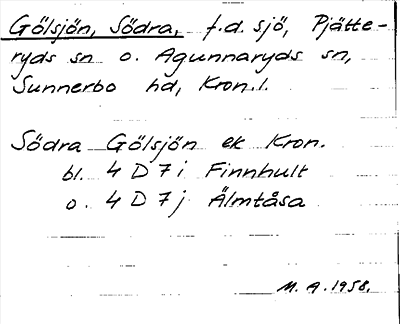 Gölsjön, Södra, f.d. sjö, Pjätte-
ryds sn o. Agunnaryds sn,
Sunnerbo hd, Kron.l.
Södra Gölsjön ek Kron.
bl. 4 D 7 i Finnhult
o. 4 D 7 j Älmtåsa
M. A. 1958.